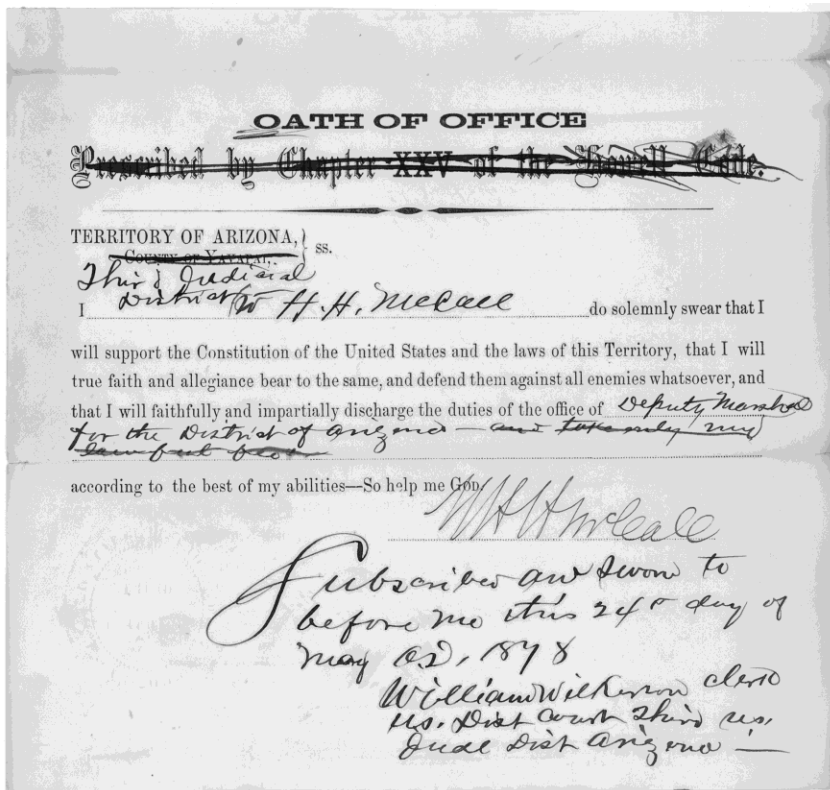 OATH OF OFFICE
Prescribed by Chapter XXV of the Howell Code.
TERRITORY OF ARIZONA, } ss.
COUNTY OF YAVAPAI,
Third Judicial
District
I W H. H. McCall do solemnly swear that I
will support the Constitution of the United States and the laws of this Territory, that I will
true faith and allegiance bear to the same, and defend them against all enemies whatsoever, and
that I will faithfully and impartially discharge the duties of the office of Deputy Marshal
for the District of Arizona — and take only my
lawful fees
according to the best of my abilities—So help me God.
W H H McCall
Subscribed and Sworn to
before me this 24th day of
May AD, 1878
William Wilkerson clerk
US. Dist Court Third US.
Judl Dist Arizona —